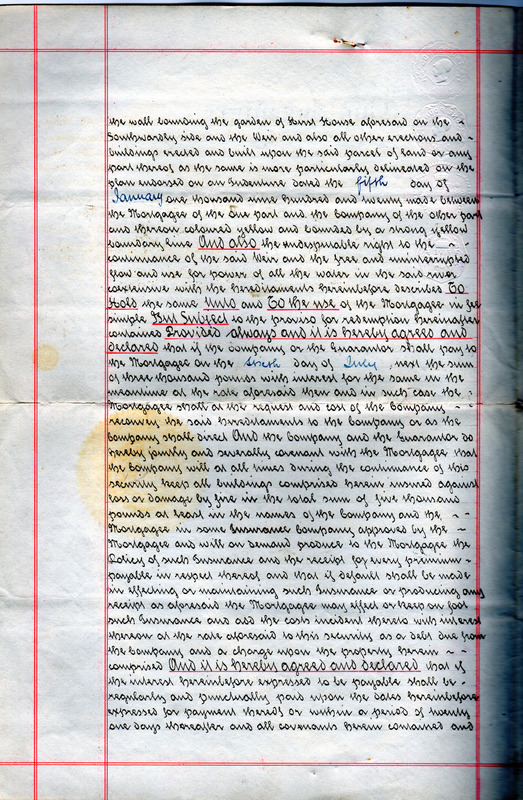 the wall bounding the garden of Hirst House aforesaid on the -
Southwardly side and the Weir and also all other erections and -
buildings erected and built upon the said parcel of land or any
part thereof as the same is more particularly delineated on the
plan endorsed on an Indenture dated the fifth day of
January one thousand nine hundred and twenty made between
the Mortgagee of the one part and the Company of the other part
and thereon coloured yellow and bounded by a strong yellow
boundary line And also the indisputable right to the - -
continuance of the said Weir and the free and uninterrupted
flow and use for power of all the water in the said river
coextensive with the hereditaments hereinbefore described To
Hold the same Unto and To the use of the Mortgagee in fee
simple But Subject to the proviso for redemption hereinafter
contained Provided always and it is hereby agreed and
declared that if the Company or the Guarantor shall pay to
the Mortgagee on the sixth day of July next the sum
of three thousand pounds with interest for the same in the
meantime at the rate aforesaid then and in such case the -
Mortgagee shall at the request and cost of the Company - -
reconvey the said hereditaments to the Company or as the
Company shall direct And the Company and the Guarantor do
hereby jointly and severally covenant with the Mortgagee that
the Company will at all times during the continuance of this
security keep all buildings comprised herein insured against
loss or damage by fire in the total sum of five thousand
pounds at least in the names of the Company and the - -
Mortgagee in some Insurance Company approved by the -
Mortgagee and will on demand produce to the Mortgagee the
Policy of such Insurance and the receipt for every premium -
payable in respect thereof and that if default shall be made
in effecting or maintaining such Insurance or producing any
receipt as aforesaid the Mortgagee may effect or keep on foot
such Insurance and add the costs incident thereto with interest
thereon at the rate aforesaid to this security as a debt due from
the Company and a charge upon the property herein - -
comprised And it is hereby agreed and declared that if
the interest hereinbefore expressed to be payable shall be -
regularly and punctually paid upon the dates hereinbefore
expressed for payment thereof or within a period of twenty
one days thereafter and all covenants herein contained and